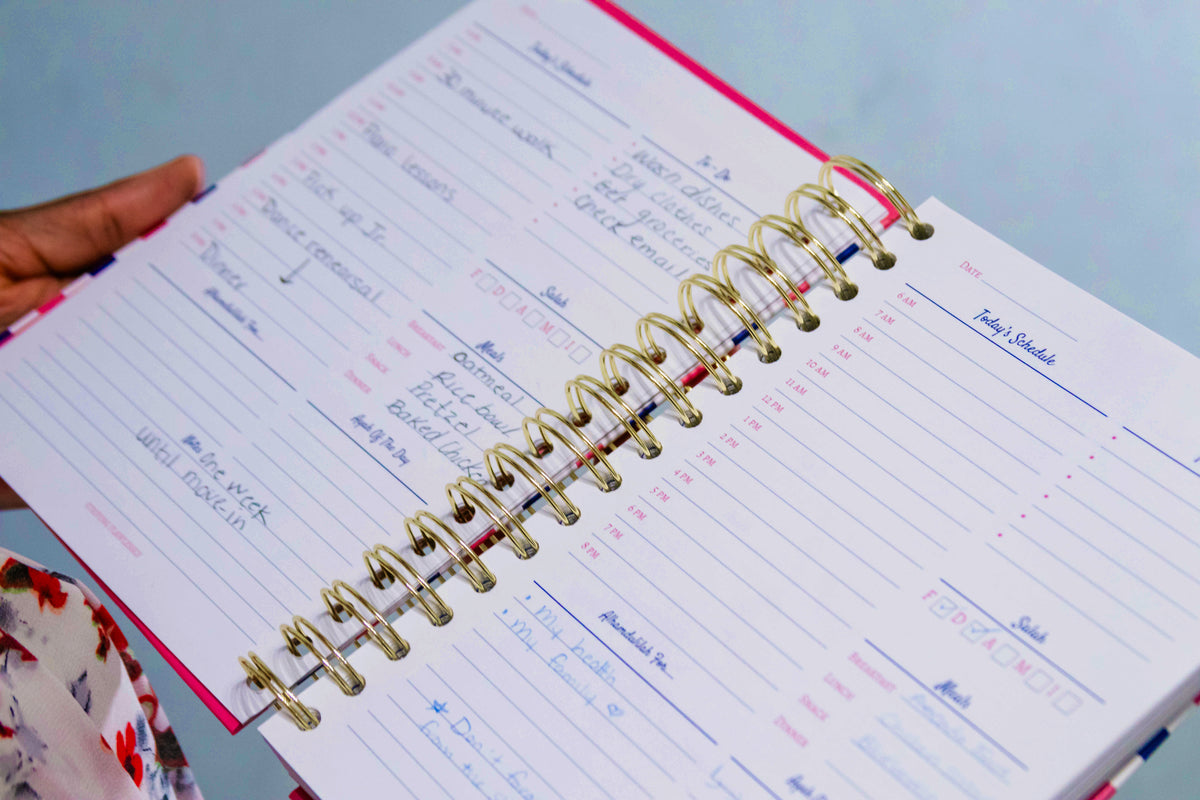 Today's Schedule
30 minute walk
Piano lessons
Pick up Jr.
Dance rehearsal
Dinner
To-Do
Wash dishes
Dry clothes
Get groceries
Check email
Salah
F D A M I
Meals
BREAKFAST Oatmeal
LUNCH Rice bowl
SNACK Pretzel
DINNER Baked Chicken
Alhamdulillah For...
Ayah Of The Day
Notes One week
until move-in
DATE
Today's Schedule
6 AM
7 AM
8 AM
9 AM
10 AM
11 AM
12 PM
1 PM
2 PM
3 PM
4 PM
5 PM
6 PM
7 PM
8 PM
Salah
F D A M I
Meals
BREAKFAST
LUNCH
SNACK
DINNER
Alhamdulillah For...
My health
My family
Don't